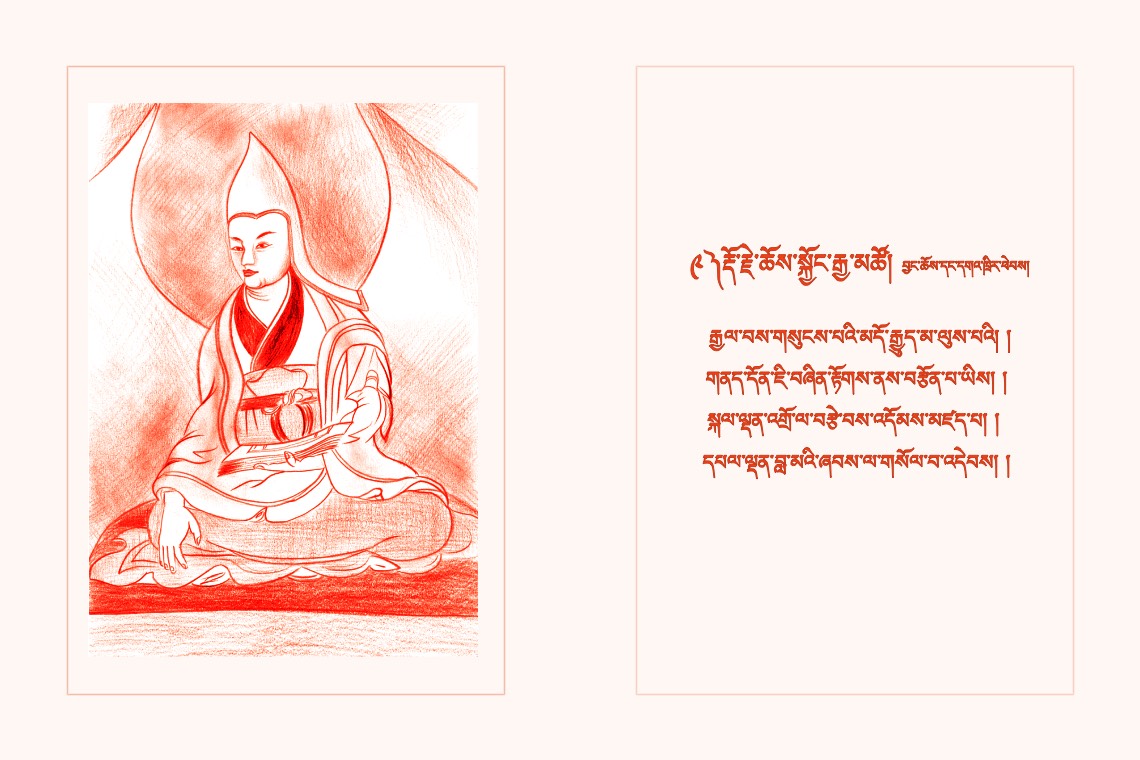 ༩ ༽རྡོ་རྗེ་ཆོས་སྐྱོང་རྒྱ་མཚོ། བྱང་ཆོས་དང་དགའ་ཁྲིར་ཕེབས།
རྒྱལ་བས་གསུངས་པའི་མདོ་རྒྱུད་མ་ལུས་པའི། །
གནད་དོན་ཇི་བཞིན་རྟོགས་ནས་བརྩོན་པ་ཡིས། །
སྐལ་ལྡན་འགྲོ་ལ་བརྩེ་བས་འདོམས་མཛད་པ། །
དཔལ་ལྡན་བླ་མའི་ཞབས་ལ་གསོལ་བ་འདེབས། །